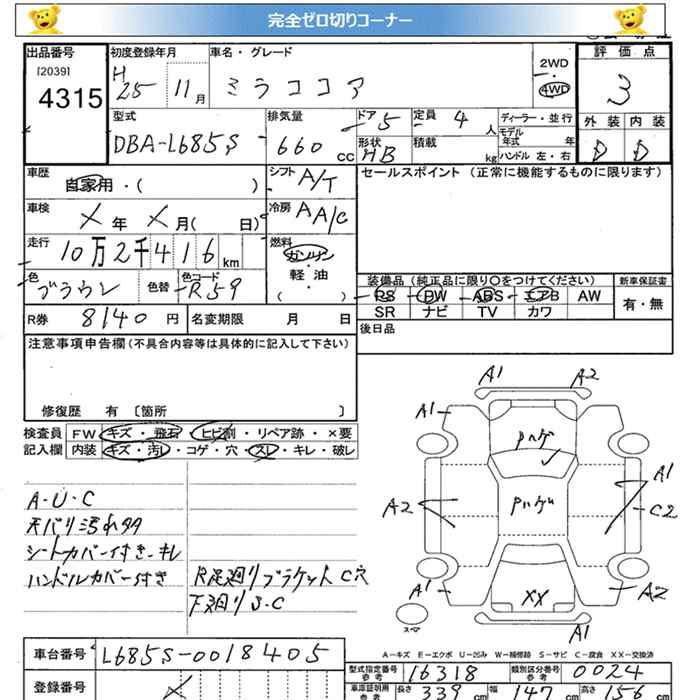 完全ゼロ切りコーナー
出品番号 初度登録年月 車名・グレード 評価点
[2039]
4315
H25 11月
ミラココア
2WD
4WD
3
型式 排気量 ドア 定員 ディーラー・並行 外装 内装
DBA-L685S
660 cc
5
4人
モデル年式 年
形状 積載
HB
kg
ハンドル 左・右
D D
車歴 シフト セールスポイント (正常に機能するものに限ります)
自家用・( )
A/T
車検 冷房
X年 X月( 日)
AA/C
走行 燃料
10万2千416km
ガソリン
軽・油
( )
色 色替 色コード
ブラウン
R59
装備品(純正品に限り○をつけてください) 新車保証書
PS PW ABS エアB AW
SR ナビ TV カワ
有・無
R券 8140円 名変期限 月 日
後日品
注意事項申告欄(不具合内容等は具体的に記入して下さい)
修復歴 有 〔箇所 〕
検査員 FW キズ・飛石・ヒビ割・リペア跡・×要
記入欄 内装 キズ・汚レ・コゲ・穴・スレ・キレ・破レ
A・U・C
天バリ汚れタタ
シートカバー付き・キレ
ハンドルカバー付き
R足廻りブラケットC穴
下廻りS・C
A1 A2
A1
Pハゲ
A1
A2
Pハゲ
C2
A1
XX
A2
スペア
A1
A-キズ E-エクボ U-凹み W-補修跡 S-サビ C-腐食 XX-交換済
車台番号 L685S-0018405
型式指定番号 参考 16318 類別区分番号 参考 0024
登録番号
車庫証明用 参考 長さ 339cm 幅 147cm 高さ 156cm